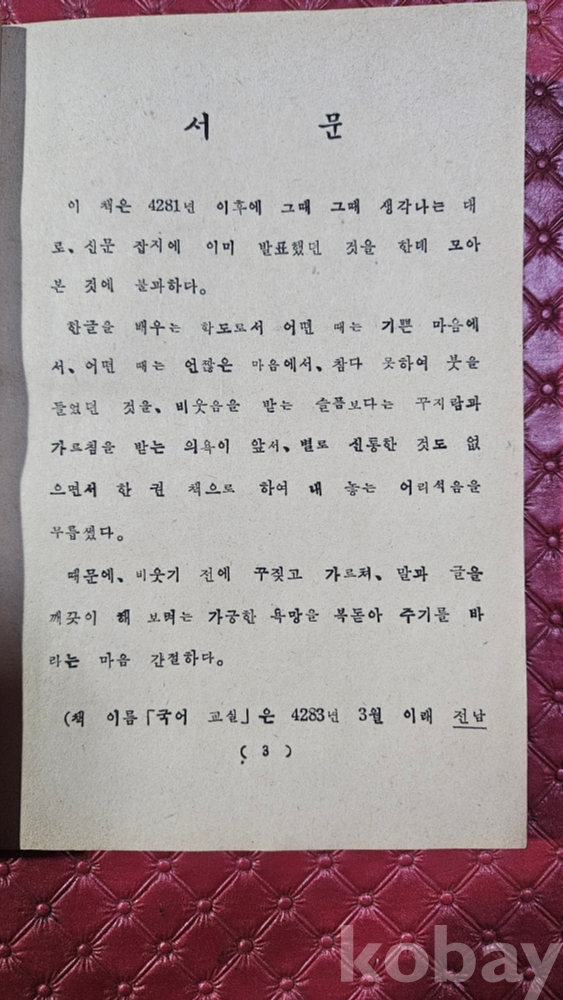 서 문
이 책은 4281년 이후에 그때 그때 생각나는 대
로, 신문 잡지에 이미 발표했던 것을 한데 모아
본 것에 불과하다。
한글을 배우는 학도로서 어떤 때는 기쁜 마음에
서, 어떤 때는 언짢은 마음에서, 참다 못하여 붓을
들었던 것을, 비웃음을 받는 슬픔보다는 꾸지람과
가르침을 받는 의욕이 앞서, 별로 신통한 것도 없
으면서 한 권 책으로 하여 내 놓는 어리석음을
무릅썼다。
때문에, 비웃기 전에 꾸짖고 가르쳐, 말과 글을
깨끗이 해 보려는 가긍한 욕망을 북돋아 주기를 바
라는 마음 간절하다。
(책 이름 「국어 교실」은 4283년 3월 이래 전남
( 3 )
kobay